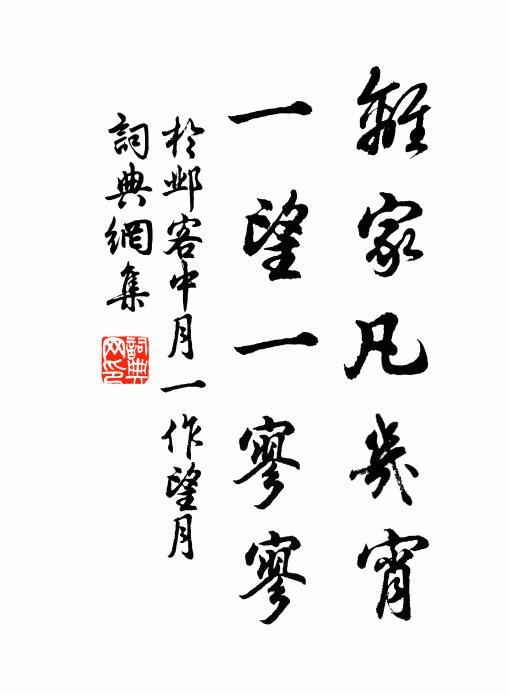 離家凡幾宵
一望一寥寥
於鄴客中月一作望月
詞典網集
詞典網印